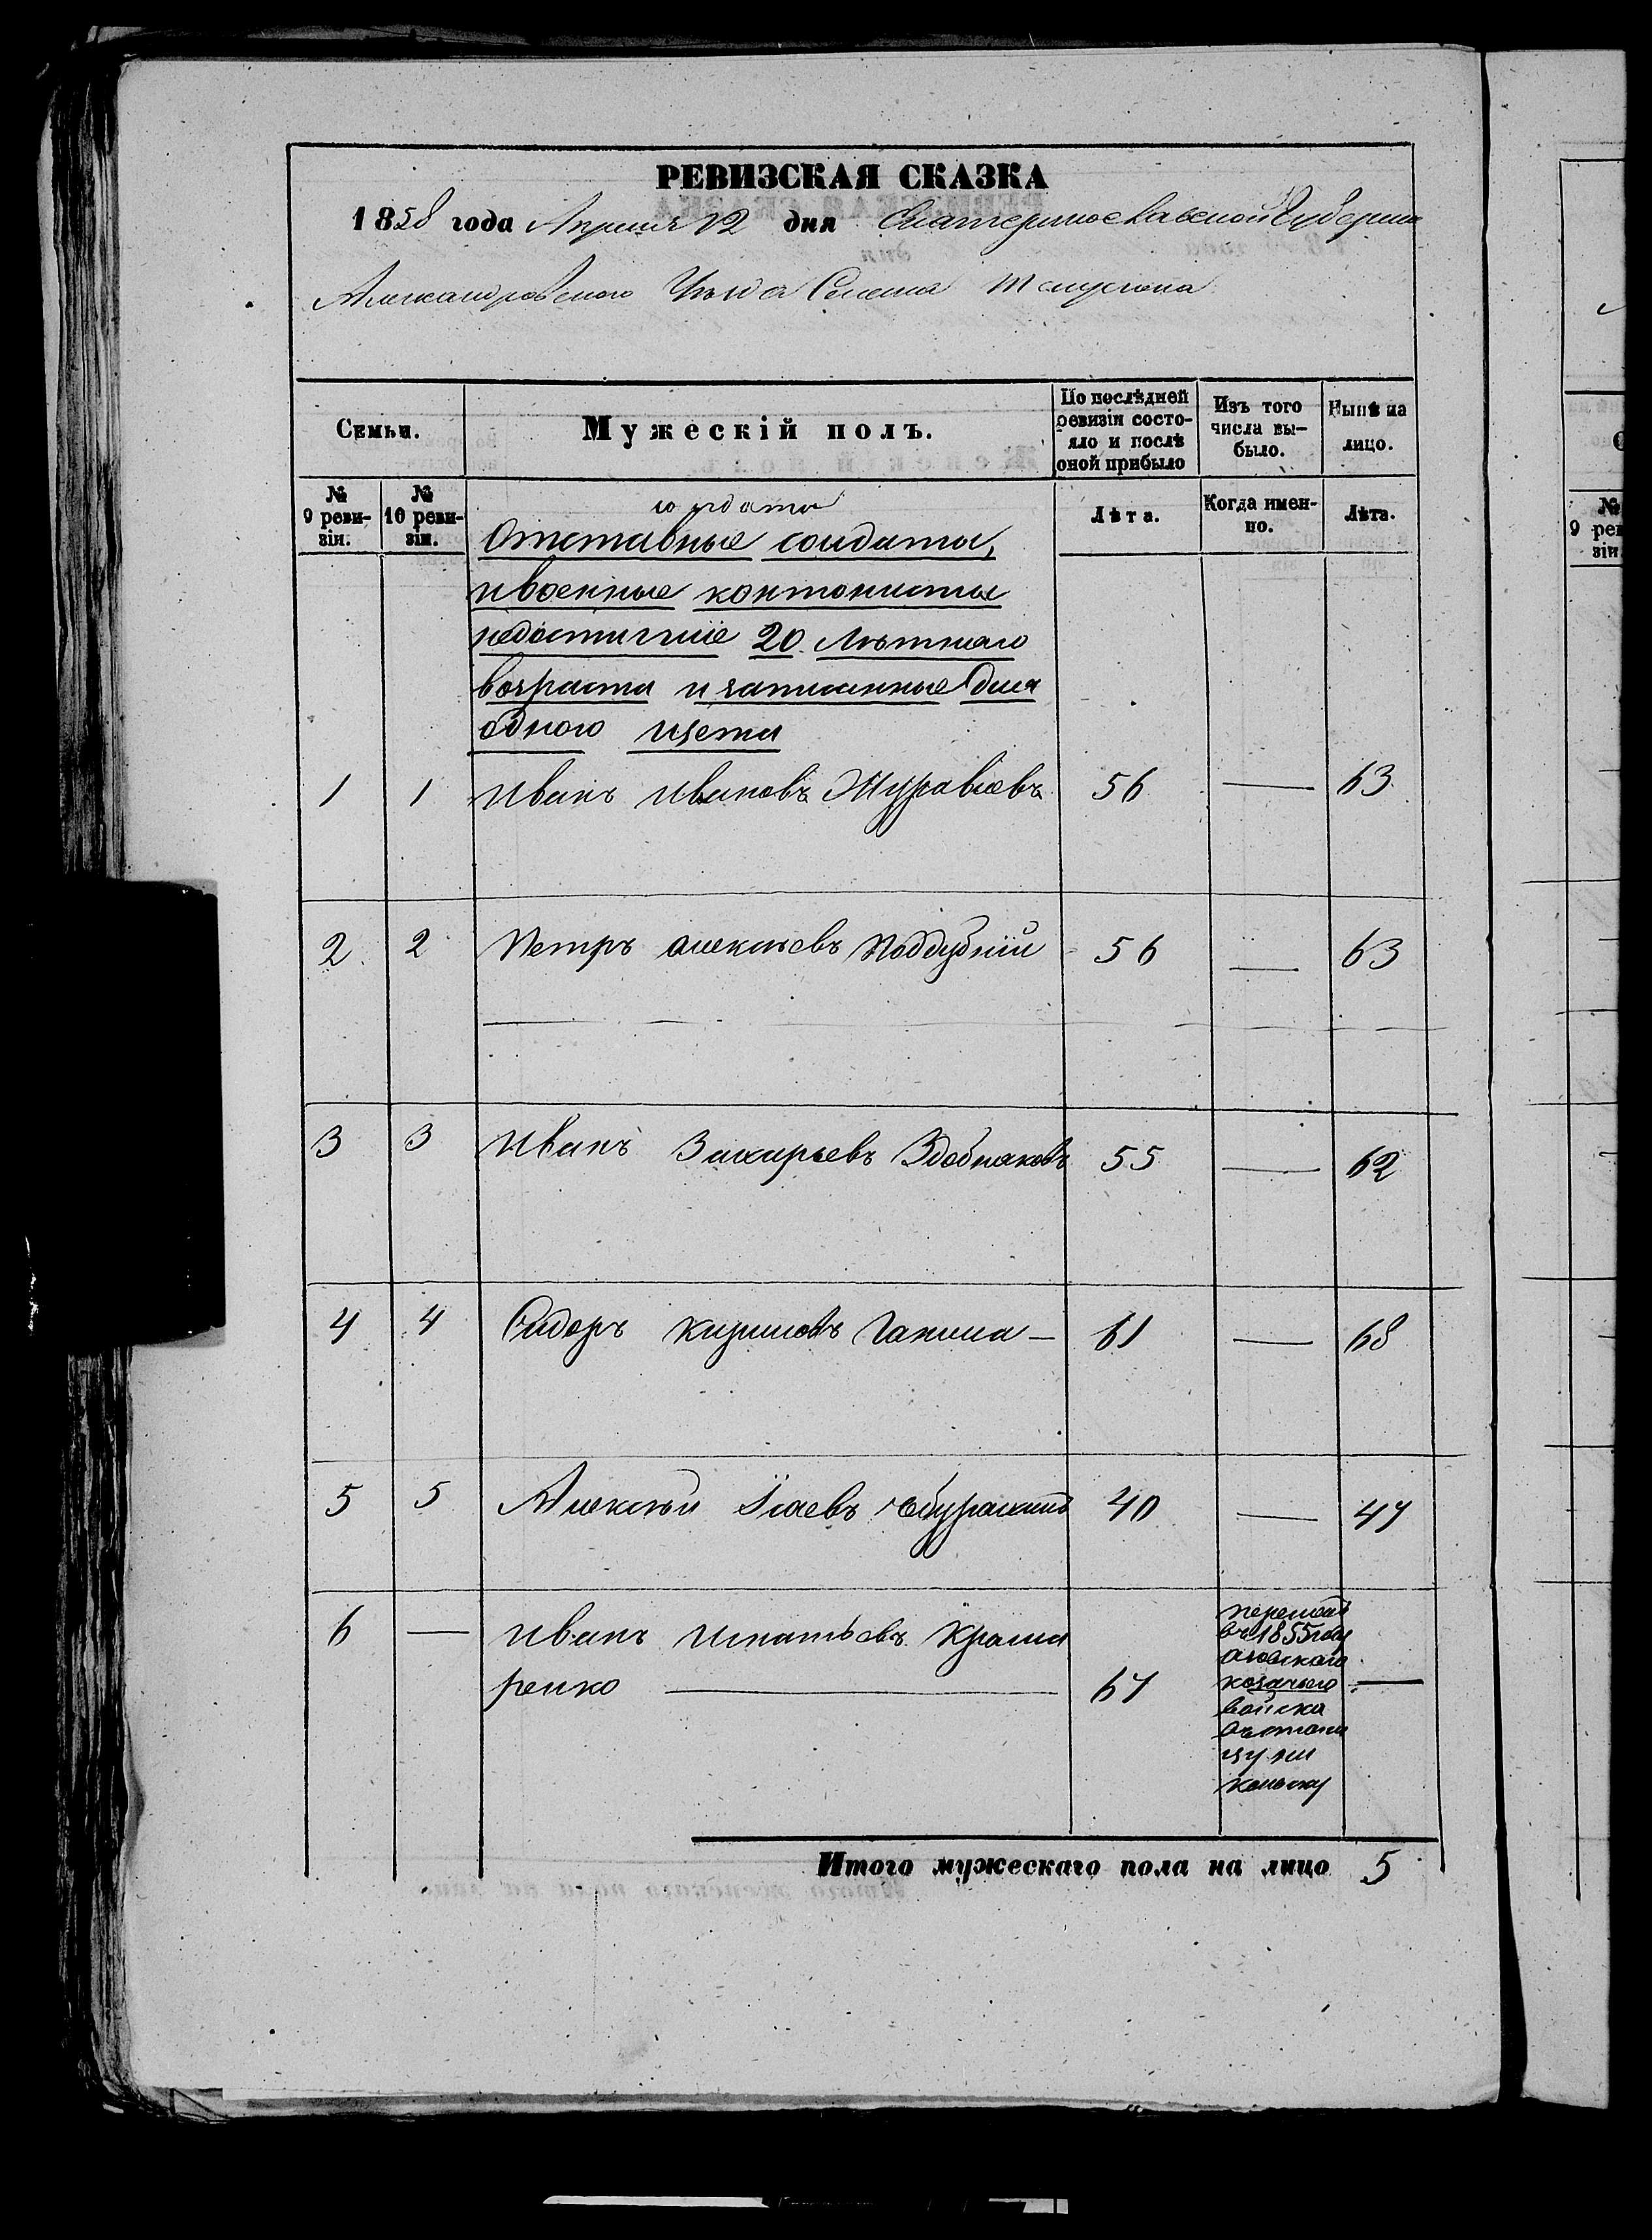 РЕВИЗСКАЯ СКАЗКА
1858 года Апреля 12 дня Екатеринославской Губернии
Александровского Уѣзда Селена
Семьи.
Мужескій полъ.
По послѣдней ревизіи состояло и послѣ оной прибыло
Изъ того числа выбыло.
Нынѣ на лицо.
№ 9 ревизіи.
№ 10 ревизіи.
Лѣта.
Когда именно.
Лѣта.
солдаты
Отставные солдаты,
и военные контонисты
недостигшіе 20 лѣтнего
возраста и записанные для
одного щета
1 1 Иванъ Ивановъ Журавлевъ 56 — 63
2 2 Петръ Алексѣевъ Поддубній 56 — 63
3 3 Иванъ Захарьевъ Здобняковъ 55 — 62
4 4 Сидоръ Кириловъ Ганжа — 61 — 68
5 5 Алексѣй Ісаевъ 40 — 47
6 — Иванъ Игнатьевъ Крама
ренко — 67 —
въ 1855 году
азовскаго
козачьего
войска
Итого мужескаго пола на лицо 5
№
9 рев
зіи